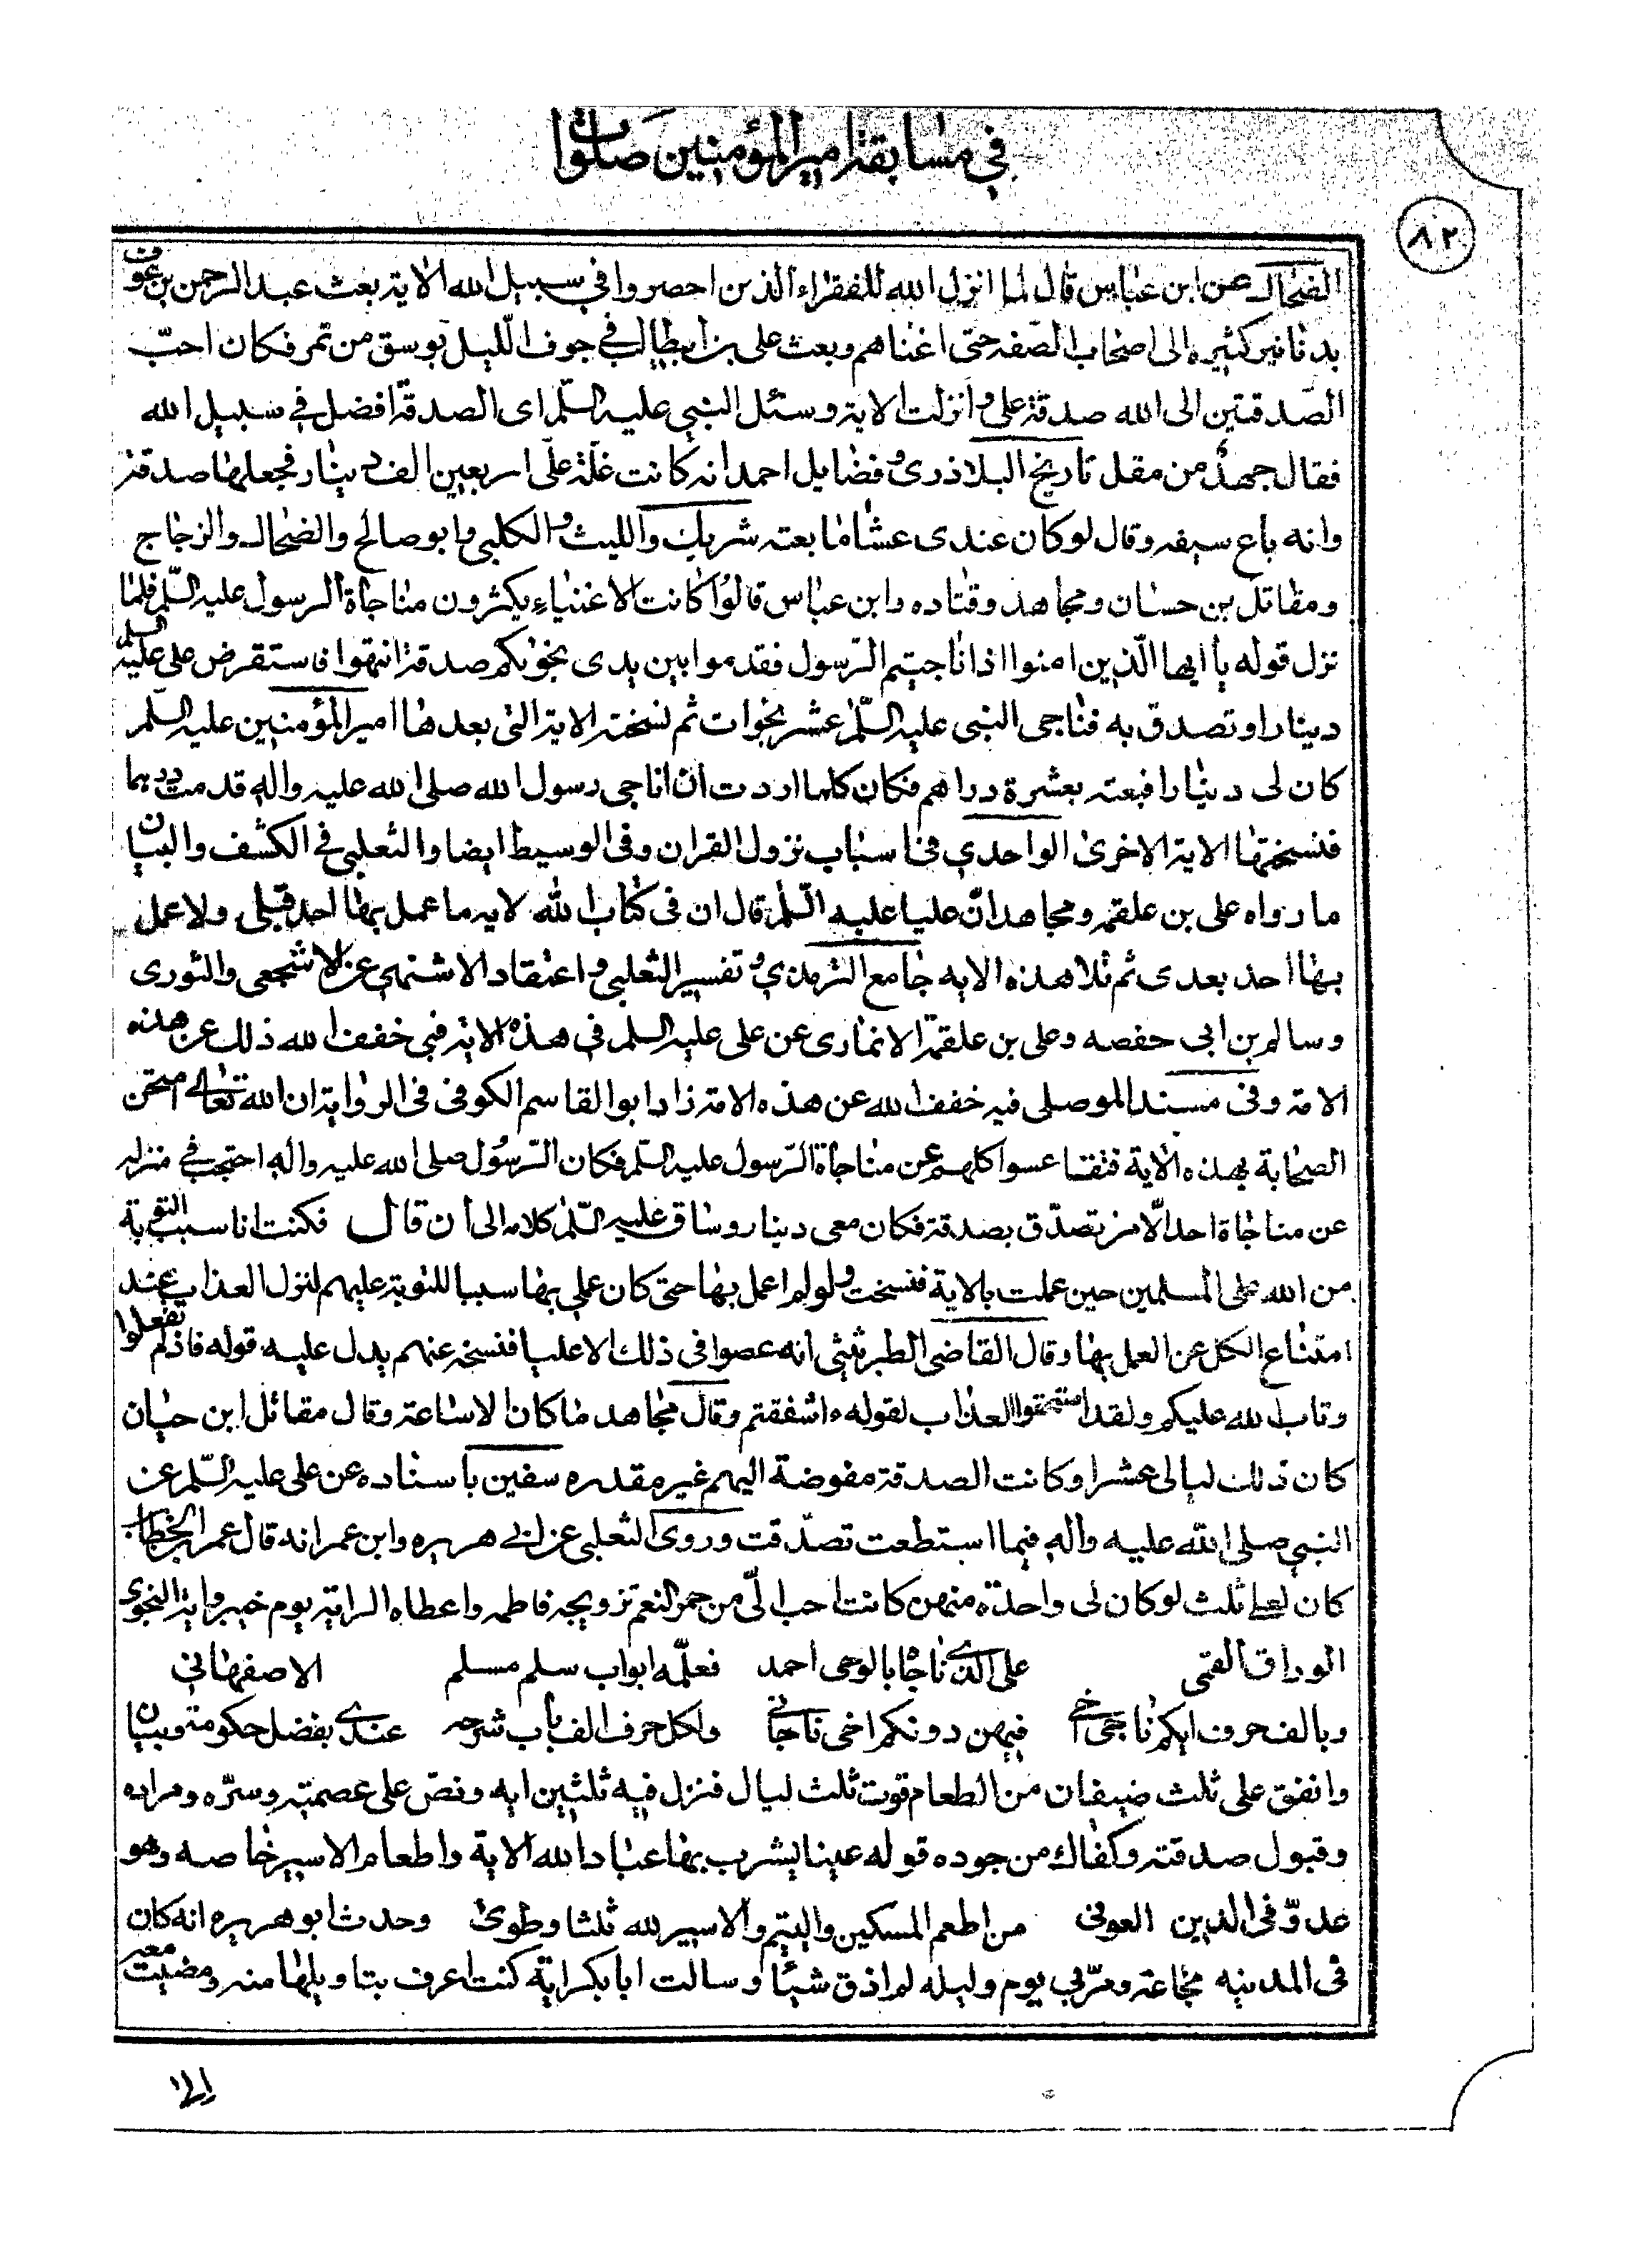 في مسابقة امير المؤمنين صلوات
٨٢
الضحاك عن ابن عباس قال لما انزل الله للفقراء الذين احصروا في سبيل الله الاية بعث عبد الرحمن بن عوف
بدنانير كثيرة الى اصحاب الصّفه حتى اغناهم وبعث على بن ابيطالب في جوف اللّيل بوسق من تمر فكان احبّ
الصّدقتين الى الله صدقة على وانزلت الاية وسئل النبي عليه السّلم اى الصدقة افضل في سبيل الله
فقال جهدٌ من مقل تاريخ البلاذرى وفضايل احمد انه كانت غلّة علّى اربعين الف دينار فجعلها صدقة
وانه باع سيفه وقال لو كان عندى عشاما بعته شريك والليث والكلبي وابو صالح والضحاك والزجاج
ومقاتل بن حسان ومجاهد وقتاده وابن عباس قالوُا كانت الاغنياء يكثرون مناجاة الرسول عليه السّلم فلما
نزل قوله يا ايها الّذين امنوا اذا ناجيتم الرّسول فقدموا بين يدى نجويكم صدقة انتهوا فاستقرض على عليه السلم
دينارا وتصدق به فناجى النبى عليه السّلم عشر نجوات ثم نسخته الاية التى بعدها امير المؤمنين عليه السلم
كان لى دينارا فبعته بعشرة دراهم فكان كلما اردت ان اناجى رسول الله صلى الله عليه واله قدمت درهما
فنسختها الاية الاخرى الواحدي في اسباب نزول القران وفى الوسيط ايضا والثعلبى في الكشف والبيان
ما رواه على بن علقمه ومجاهد انّ عليا عليه السّلم قال ان فى كتاب الله لاية ما عمل بها احد قبلى ولا عمل
بها احد بعدى ثم تلا هذه الايه جامع الترمذي وتفسير الثعلبى واعتقاد الاشنهي عن الاشجعى والثورى
وسالم بن ابى حفصه وعلى بن علقمة الانمارى عن على عليه السلم في هذه الاية فبى خفف الله ذلك عن هذه
الامة وفى مسند الموصلى فيه خفف الله عن هذه الامة زاد ابو القاسم الكوفى فى الرواية ان الله تعالى امتحن
الصحابة بهذه الاية فتقاعسوا كلهم عن مناجاة الرّسول عليه السلم فكان الرّسوُل صلى الله عليه واله احتجب في منزله
عن مناجاة احد الّا من تصدّق بصدقة فكان معى دينار وساق عليه السّلم كلامه الى ان قال فكنت انا سبب التوبة
من الله على المسلمين حين عملت بالاية فنسخت ولو لم اعمل بها حتى كان عملى بها سببا للتوبة عليهم لنزل العذاب عند
امتناع الكل عن العمل بها وقال القاضى الطريثيثى انه عصوا فى ذلك الا عليا فنسخه عنهم يدل عليه قوله فاذلم تفعلوا
وتاب الله عليكم ولقد استحقوا العذاب لقوله ءاشفقتم وقال مجاهد ما كان الا ساعة وقال مقاتل ابن حيان
كان ذلك ليالى عشرا وكانت الصدقة مفوضة اليهم غير مقدره سفين باسناده عن على عليه السّلم عن
النبي صلى الله عليه واله فيما استطعت تصدّقت وروى الثعلبى عن ابي هريره وابن عمر انه قال عمر بن الخطاب
كان لعلى ثلث لو كان لى واحدة منهن كانت احب الىّ من حمر النعم تزويجه فاطمه واعطاه الراية يوم خيبر واية النجوى
الوراق القمى على الذي ناجاه بالوحى احمد فعلّمه ابواب سلم مسلم الاصفهانى
وبالف حرف ايكم ناجى اخى فيهن دونكم اخى ناجانى ولكل حرف الف باب شرحه عندي بفضل حكومة وبيان
وانفق على ثلث ضيفان من الطعام قوت ثلث ليال فنزل فيه ثلثين ايه ونصّ على عصمته وستره ومراده
وقبول صدقته وكفاك من جوده قوله عينا يشرب بها عباد الله الاية واطعام الاسير خاصه وهو
عدوّ فى الدين العونى من اطعم المسكين واليتيم والاسير لله ثلثا وطوى وحدث ابو هريره انه كان
فى المدينه مجاعة ومرّ بي يوم وليله لم اذق شيئا وسالت ابا بكر اية كنت اعرف بتاويلها منه ومضيت معه